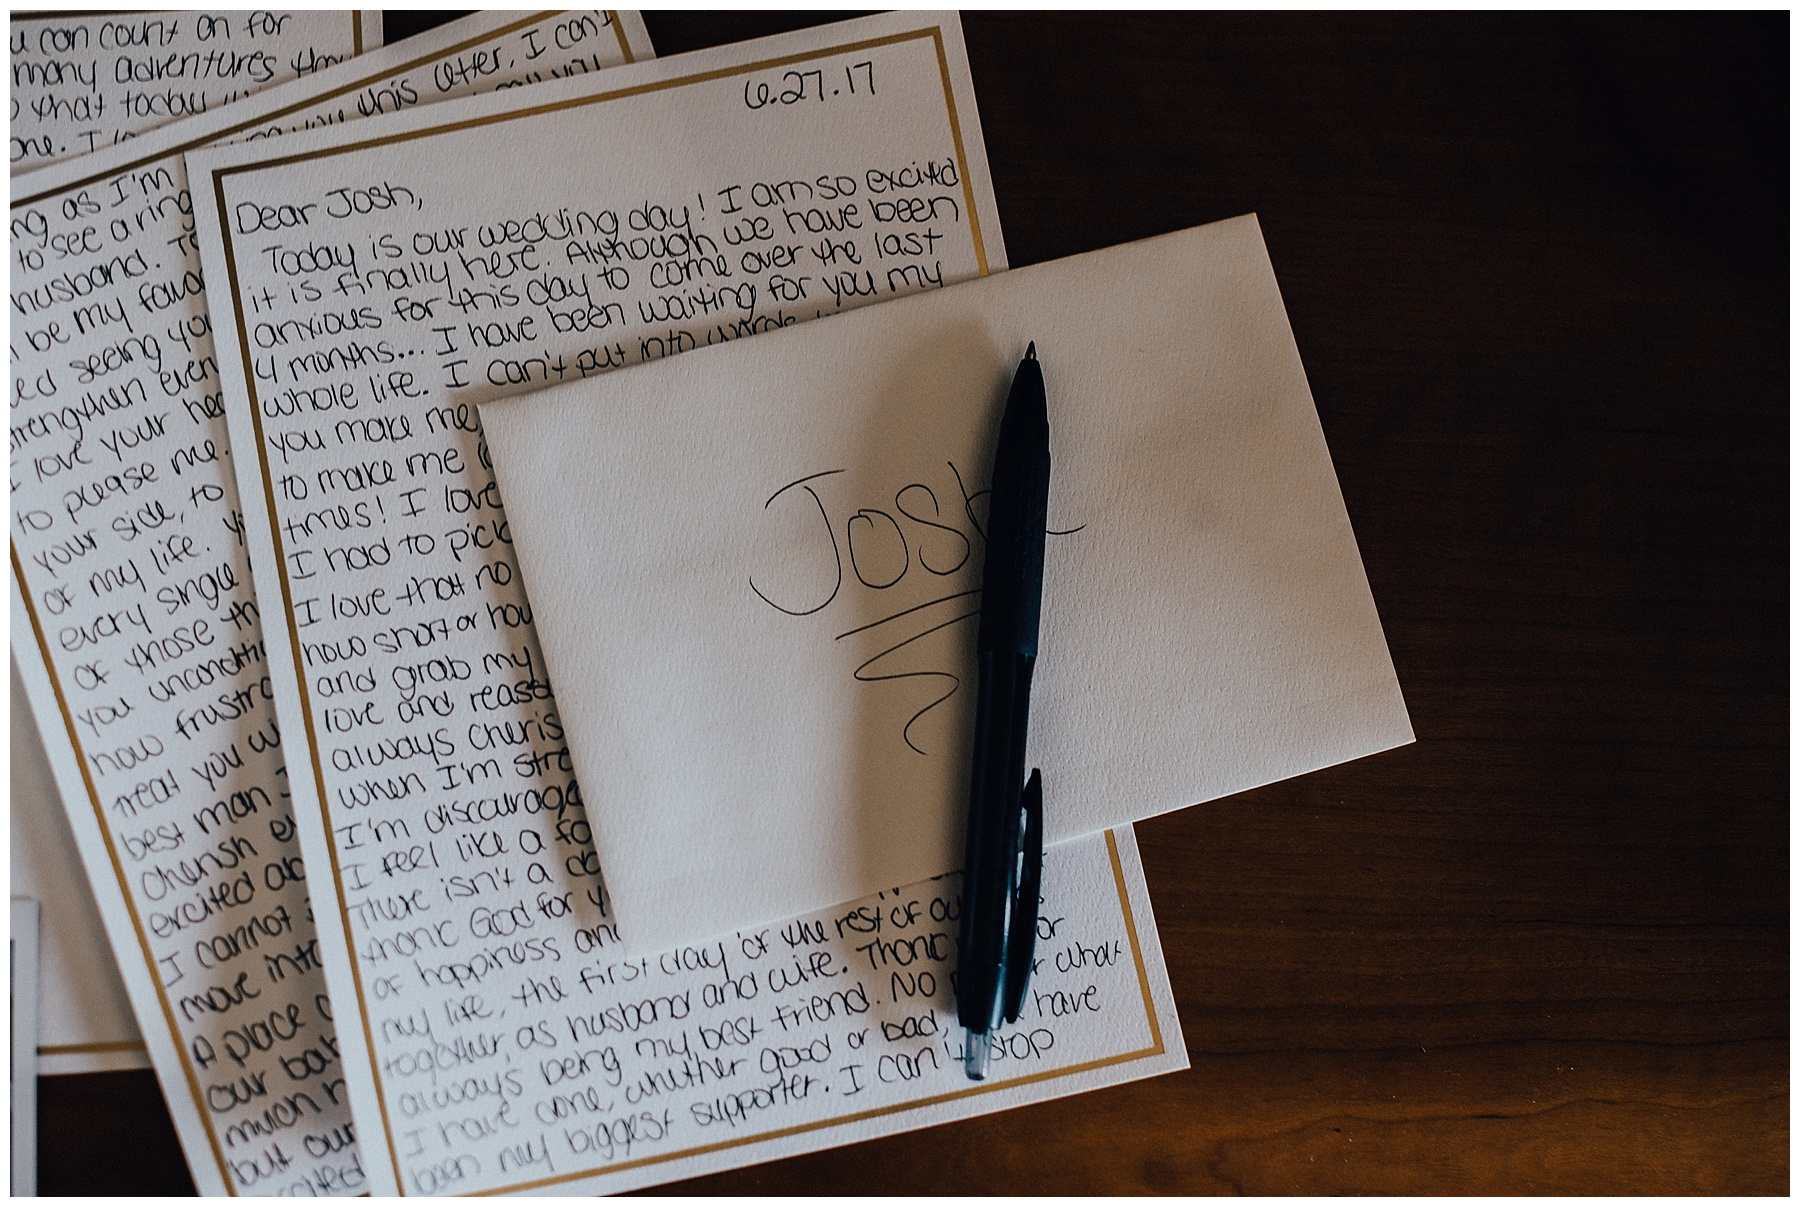 u can count on for
many adventures
that today
one. I
this letter, I can't
ng as I'm
to see a ring
husband.
be my favor
ed seeing you
strengthen even
I love your hea
to please me.
your side, to
of my life.
every single
of those thi
you unconditi
how frustra
treat you w
best man I
cherish e
excited ab
I cannot
move into
A place
our bat
much h
but our
excited
6.27.17
Dear Josh,
Today is our wedding day! I am so excited
it is finally here. Although we have been
anxious for this day to come over the last
4 months... I have been waiting for you my
whole life. I can't put into words
you make me,
to make me
times! I love
I had to pick
I love that no
how short or how
and grab my
love and reass
always cheris
when I'm stre
I'm discourage
I feel like a fo
There isn't a
thank God for y
of happiness and
my life, the first day of the rest of ou
together, as husband and wife. Thank or
always being my best friend. No r what
I have done, whether good or bad, have
been my biggest supporter. I can't stop
Josh